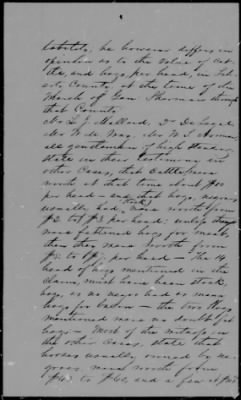 he however differs in
opinion as to the value of cat-
tle, and hogs, per head, in Lib-
erty County, at the time of the
March of Gen Sherman through
that County
L. J. Mallard, Dr
W. S. Norman
all gentlemen of high standing
state in their testimony in
other cases, that cattle were
worth at that time about $10
per head and that hogs, negroes
usually had (stock) were worth from
$2 to $3 per head; unless they
were fattened hogs for meat,
then they were worth from
per head — The 14
head of hogs mentioned in the
claim, must have been stock
hogs, as no negro had so many
hogs for bacon — the two hogs
mentioned were no doubt fat
hogs — Most of the witnesses in
the other cases, state that
horses usually owned by ne-
groes, were worth from
to $60, and a few at